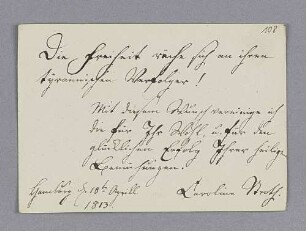 108
Die Freiheit räche sich an ihren
tyrannischen Verfolger!
Mit diesem Wunsch vereinige ich
die für Ihr Wohl u. für den
glücklichen Erfolg Ihrer heiligen
Bemühungen!
Hamburg d 18t Aprill
1813
Caroline Stroth.